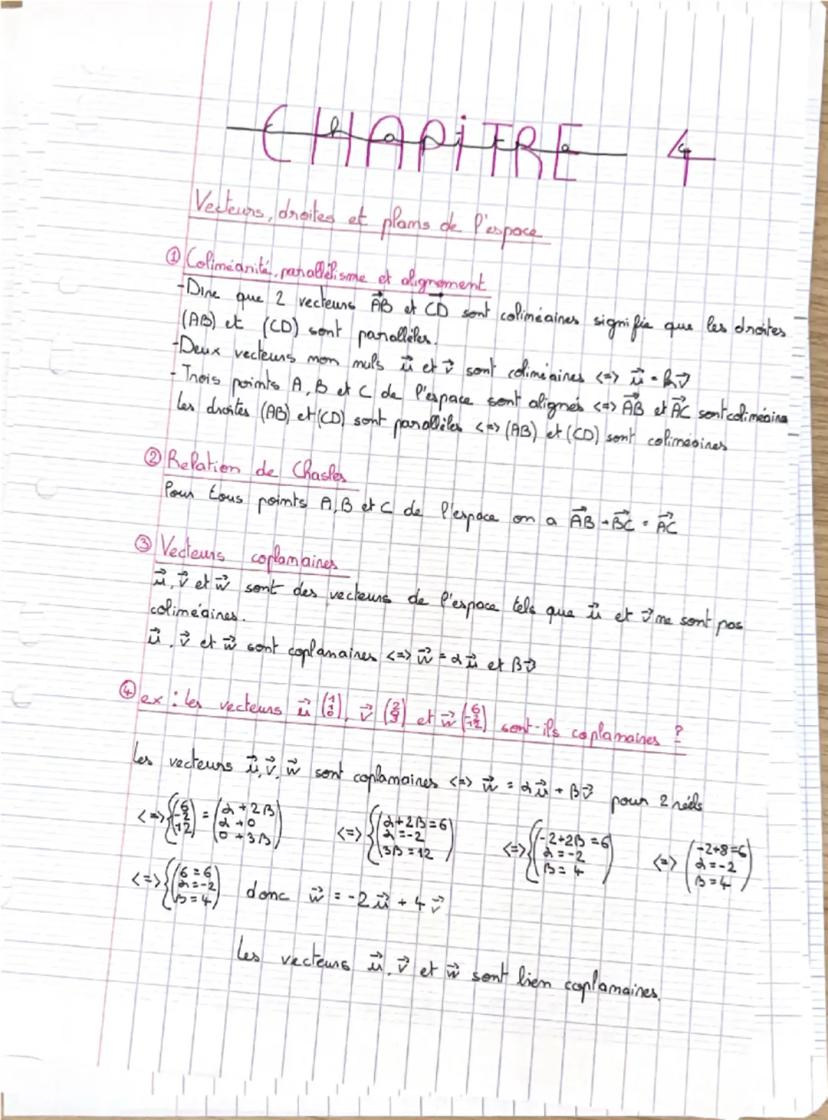 CHAPITRE 4
Vecteurs, droites et plans de l'espace
① Colinéarité, parallélisme et alignement
- Dire que 2 vecteurs $\vec{AB}$ et $\vec{CD}$ sont colinéaires signifie que les droites
(AB) et (CD) sont parallèles.
- Deux vecteurs non nuls $\vec{u}$ et $\vec{v}$ sont colinéaires <=> $\vec{u} = k\vec{v}$
- Trois points A, B et C de l'espace sont alignés <=> $\vec{AB}$ et $\vec{AC}$ sont colinéaire
Les droites (AB) et (CD) sont parallèles <=> (AB) et (CD) sont colinéaires
② Relation de Chasles
Pour tous points A, B et C de l'espace on a $\vec{AB} + \vec{BC} = \vec{AC}$
③ Vecteurs coplanaires
$\vec{u}$, $\vec{v}$ et $\vec{w}$ sont des vecteurs de l'espace tels que $\vec{u}$ et $\vec{v}$ ne sont pas
colinéaires.
$\vec{u}$, $\vec{v}$ et $\vec{w}$ sont coplanaires <=> $\vec{w} = \alpha\vec{u}$ et $\beta\vec{v}$
④ ex : les vecteurs $\vec{u} \begin{pmatrix} 1 \\ 1 \\ 0 \end{pmatrix}$, $\vec{v}$ et $\vec{w}$ sont-ils coplanaires ?
Les vecteurs $\vec{u}, \vec{v}, \vec{w}$ sont coplanaires <=> $\vec{w} = \alpha\vec{u} + \beta\vec{v}$ pour 2 réels
<=> $\begin{cases} \begin{pmatrix} 6 \\ -2 \\ 12 \end{pmatrix} = \begin{pmatrix} \alpha + 2\beta \\ \alpha + 0 \\ 0 + 3\beta \end{pmatrix} \end{cases}$ <=> $\begin{cases} \alpha + 2\beta = 6 \\ \alpha = -2 \\ 3\beta = 12 \end{cases}$ <=> $\begin{cases} -2 + 2\beta = 6 \\ \alpha = -2 \\ \beta = 4 \end{cases}$ <=> $\begin{pmatrix} -2 + 8 = 6 \\ \alpha = -2 \\ \beta = 4 \end{pmatrix}$
<=> $\begin{cases} 6 = 6 \\ \alpha = -2 \\ \beta = 4 \end{cases}$ donc $\vec{w} = -2\vec{u} + 4\vec{v}$
Les vecteurs $\vec{u}$, $\vec{v}$ et $\vec{w}$ sont bien coplanaires.